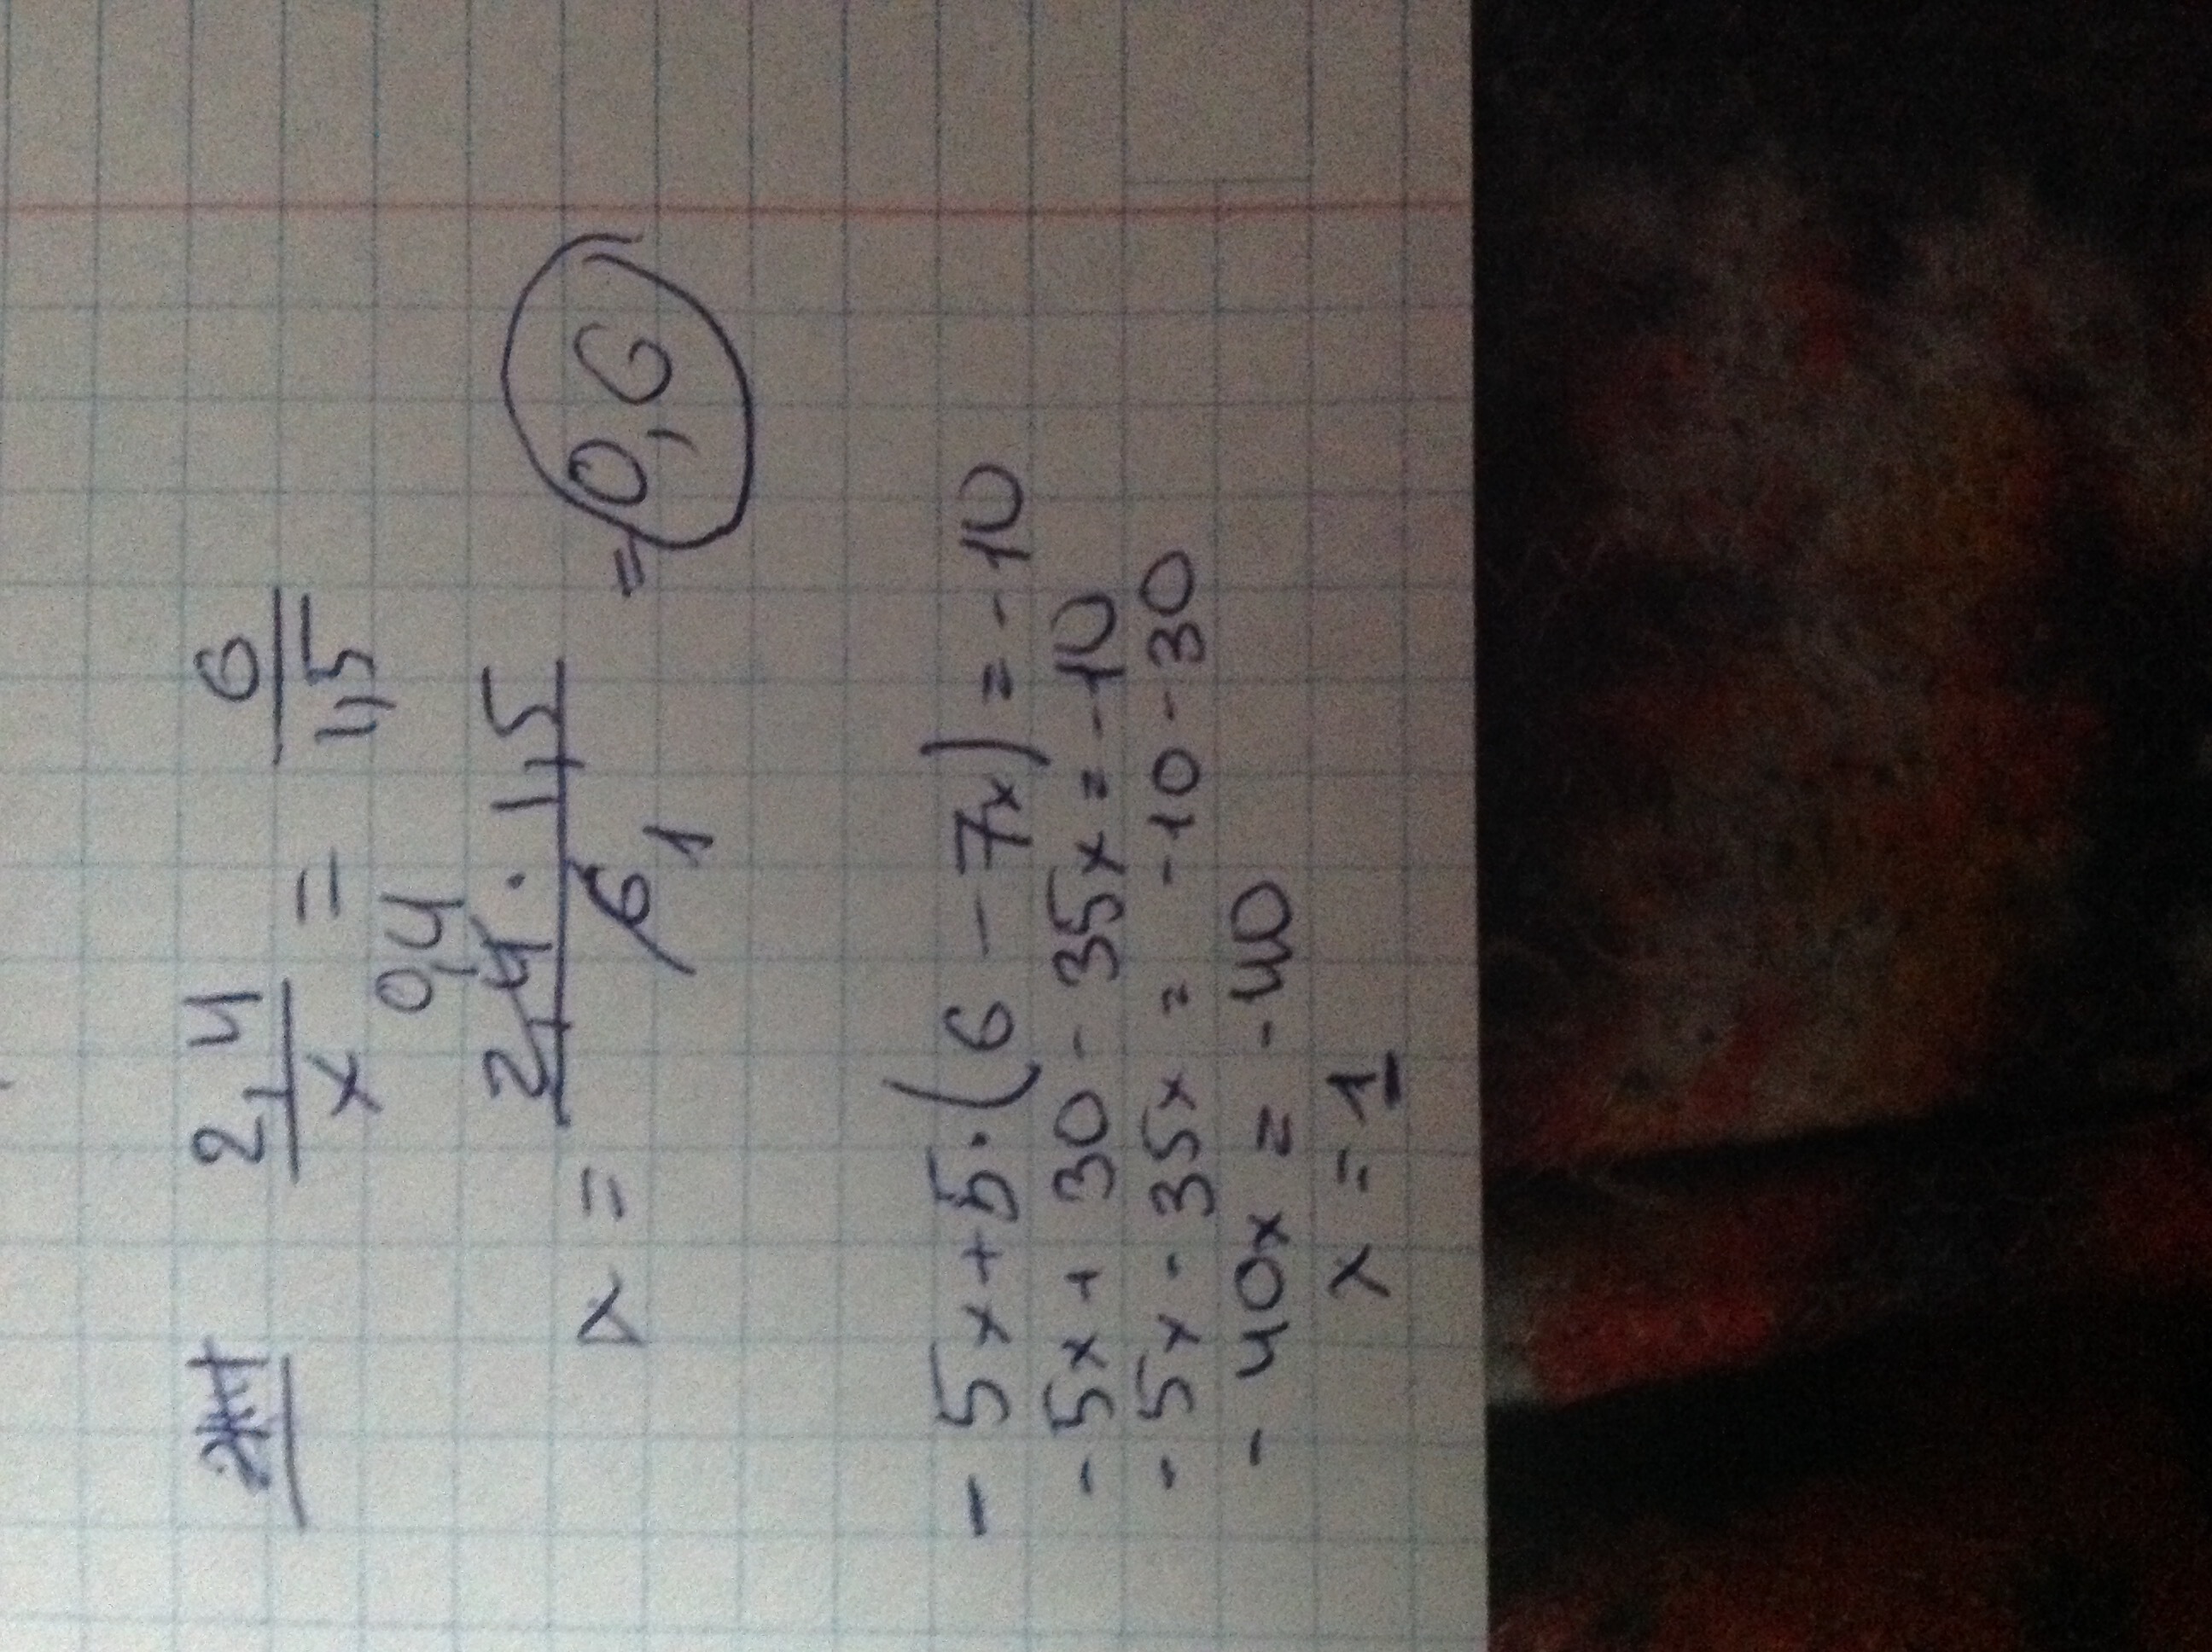 2,4/x = 6/1,5
0,4
x = 2,4 · 1,5/6 1 = 0,6
- 5x + 5 · (6 - 7x) = - 10
- 5x + 30 - 35x = -10
- 5x - 35x = -10 - 30
- 40x = - 40
x = 1